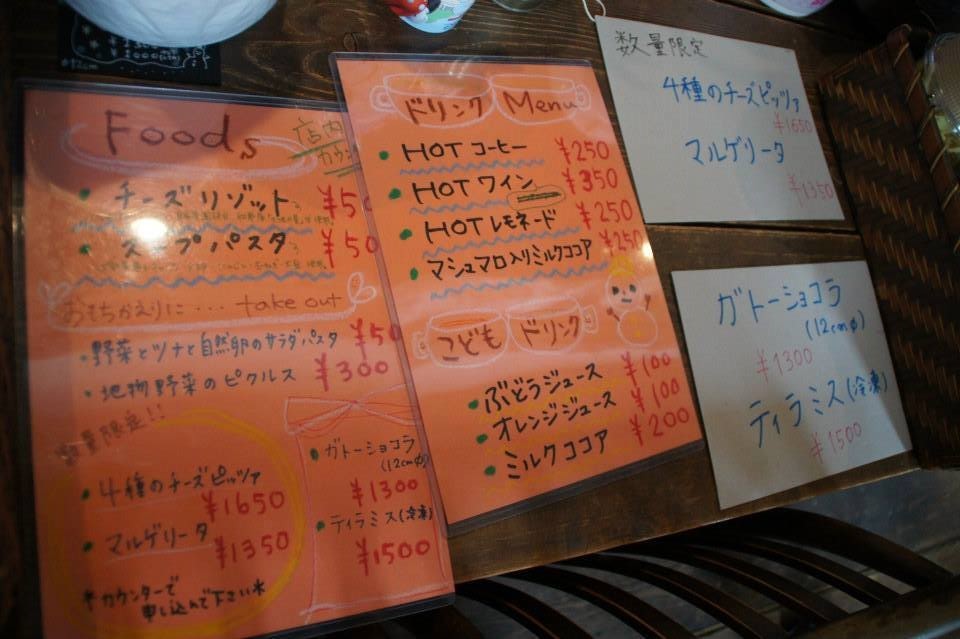 Foods
店内
・チーズリゾット ¥50
・スープパスタ ¥50
おもちかえりに‥‥take out
・野菜とツナと自然卵のサラダパスタ ¥50
・地物野菜のピクルス ¥300
数量限定!!
・4種のチーズピッツァ
¥1650
・マルゲリータ
¥1350
*カウンターで
申し込んで下さい*
・ガトーショコラ
(12cmφ)
¥1300
・ティラミス(冷凍)
¥1500
ドリンク Menu
・HOT コーヒー ¥250
・HOT ワイン ¥350
・HOT レモネード ¥250
・マシュマロ入りミルクココア ¥250
こども ドリンク
・ぶどうジュース ¥100
・オレンジジュース ¥100
・ミルクココア ¥200
数量限定
4種のチーズピッツァ
¥1650
マルゲリータ
¥1350
ガトーショコラ
(12cmφ)
¥1300
ティラミス(冷凍)
¥1500